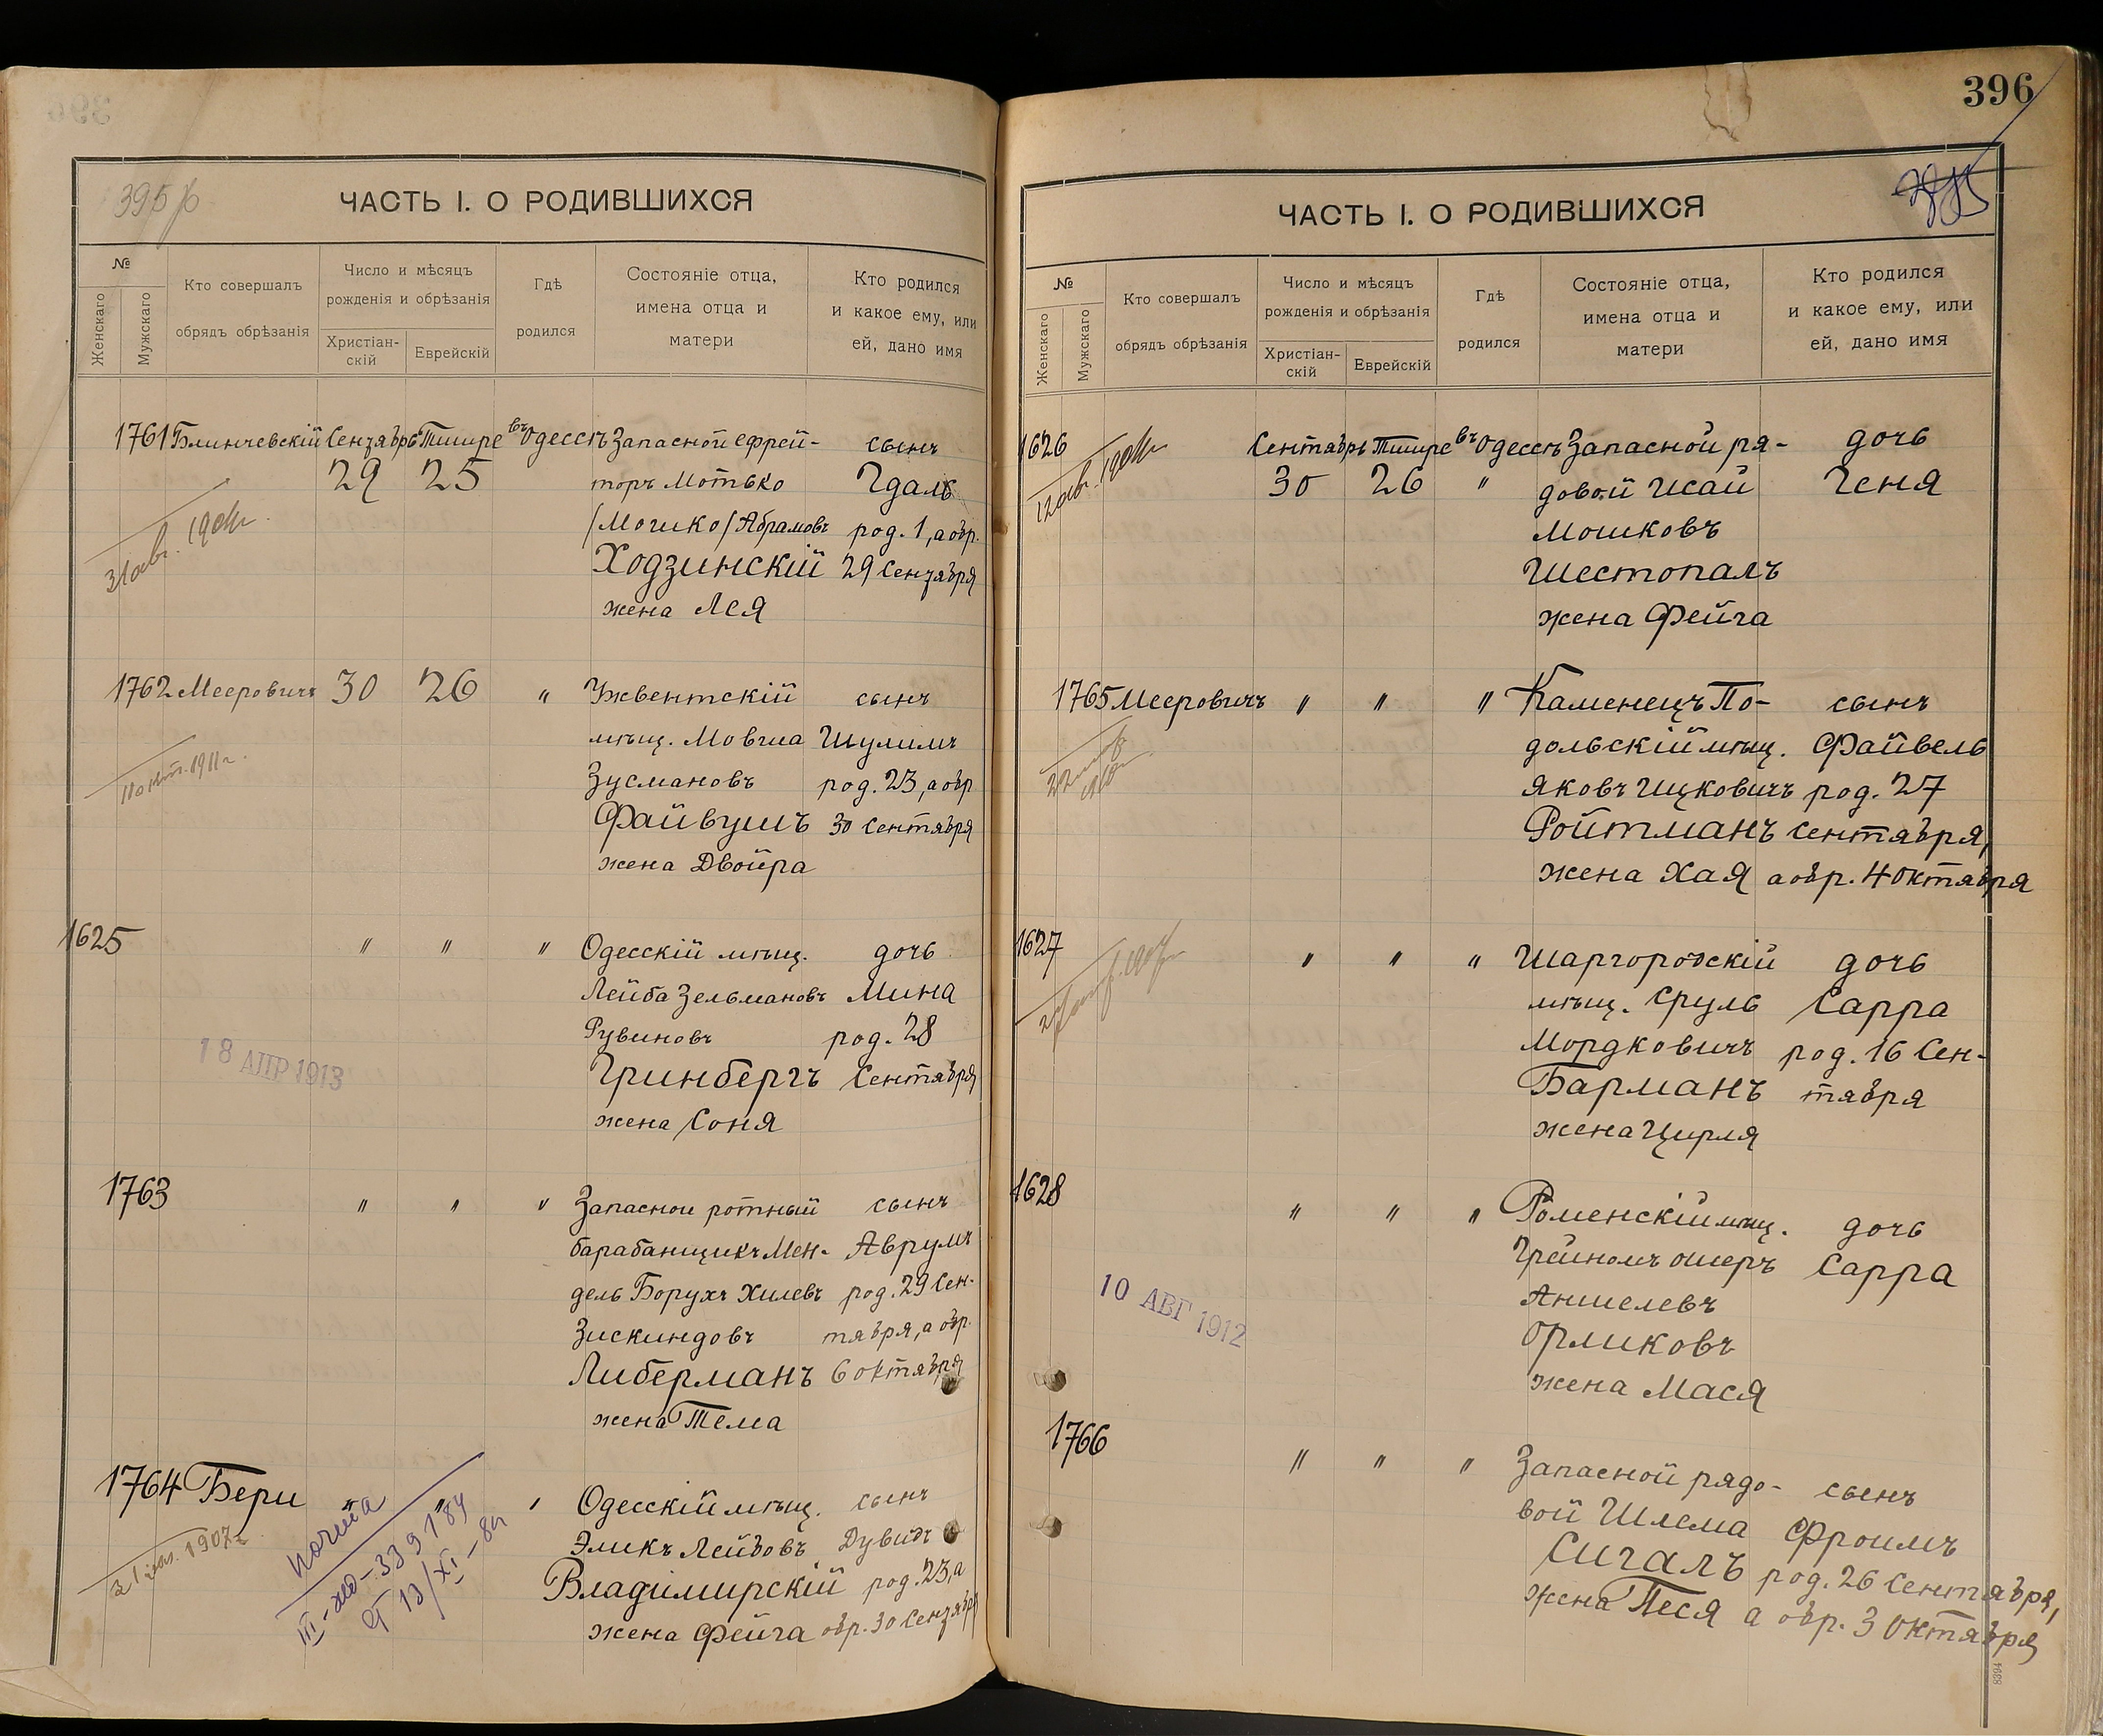 396
395 об
ЧАСТЬ I. О РОДИВШИХСЯ
№
Женскаго
Мужскаго
Кто совершалъ
обрядъ обрѣзанія
Число и мѣсяцъ
рожденія и обрѣзанія
Христіан-
скій
Еврейскій
Гдѣ
родился
Состояніе отца,
имена отца и
матери
Кто родился
и какое ему, или
ей, дано имя
1761 Блинчевскій Сентябрь Тишре въ Одессѣ Запасной ефрей- сынъ
29 25 торъ Мотько Гдаль
/Мошко/ Абрамовъ род. 1, а обр.
Ходзинскій 29 Сентября
жена Лея
31 авг. 1904 г.
1762 Мееровичъ 30 26 " Ужвентскій сынъ
мѣщ. Мовша Шулимъ
Зусмановъ род. 23, а обр
Файвушъ 30 Сентября
жена Двойра
1911 г.
1625 " " " Одесскій мѣщ. дочь
Лейба Зельмановъ Мина
Рувиновъ род. 28
Гринбергъ Сентября
жена Соня
18 АПР 1913
1763 " " " Запасной ротный сынъ
барабанщикъ Мен- Аврумъ
дель Борухъ Хилевъ род. 29 Сен-
Зискиндовъ тября, а обр.
Либерманъ 6 октября
жена Тема
1764 Бери " " " Одесскій мѣщ. сынъ
Эликъ Лейбовъ Дувидъ
Владимирскій род. 23, а
жена Фейга обр. 30 Сентября
1907 г.
копия
III-жо-339184
от 13/XI-84
396
ЧАСТЬ I. О РОДИВШИХСЯ
№
Женскаго
Мужскаго
Кто совершалъ
обрядъ обрѣзанія
Число и мѣсяцъ
рожденія и обрѣзанія
Христіан-
скій
Еврейскій
Гдѣ
родился
Состояніе отца,
имена отца и
матери
Кто родился
и какое ему, или
ей, дано имя
1626 Сентябрь Тишре въ Одессѣ Запасной ря- дочь
30 26 " довой Исай Геня
Мошковъ
Шестопалъ
жена Фейга
1765 Мееровичъ " " " Каменецъ По- сынъ
дольскій мѣщ. Файвель
Яковъ Ицковичъ род. 27
Ройтманъ Сентября,
жена Хая а обр. 4 октября
1627 " " " Шаргородскій дочь
мѣщ. Сруль Сарра
Мордковичъ род. 16 Сен-
Барманъ тября
жена Цирля
1628 " " " Роменскій мѣщ. дочь
Грейномъ Ошеръ Сарра
Аншелевъ
Орликовъ
жена Мася
10 АВГ 1912
1766 " " " Запасной рядо- сынъ
вой Шлема Фроимъ
Сигалъ род. 26 Сентября,
жена Песя а обр. 3 Октября
4689